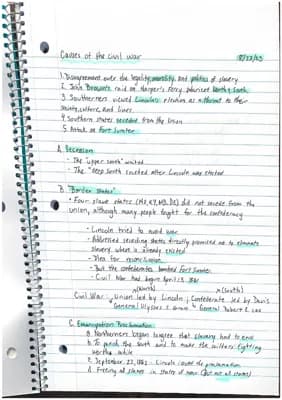 Causes of the civil war
1. Disagreement over the legality, morality, and politics of slavery
2. John Brown's raid on Harper's Ferry polarized North & South
3. Southerners viewed Lincoln's election as a threat to their
society, culture, and lives
4. Southern states seceded from the Union
5. Attack on Fort Sumter
A. Secession
- The "upper south" waited
- The "deep south" seceded after Lincoln was elected
B. "Border States"
Four slave states (MO, KY, MD, DE) did not secede from the
union, although many people fought for the confederacy
- Lincoln tried to avoid war
- Addressed seceding states directly promised no to eliminate
slavery where is already existed
- Plea for reconciliation
- But the confederates bombed Fort Sumter
- Civil War had begun April 1861
(North) (South)
Civil War: Union led by Lincoln; Confederate led by Davis
General Ulysses S. Grant General Robert E. Lee
C. Emancipation Proclamation
a. Northerners began to agree that slavery had to end
b. To punish the south and to make the soldiers' fighting
worth while
c. September 22, 1862 - Lincoln issued the proclamation
d. Freeing all slaves in states of (but not all states)